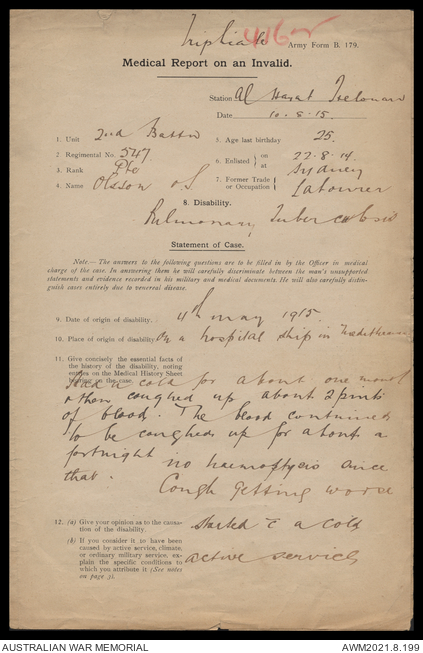 Triplicate
Army Form B. 179.
Medical Report on an Invalid.
Station Al Hayat Helouan
Date 10.8.15.
1. Unit 2nd Battn
2. Regimental No. 547
3. Rank Pte
4. Name Olsson O S
5. Age last birthday 25.
6. Enlisted { on 22-8-14.
at Sydney
7. Former Trade or Occupation } Labourer
8. Disability.
Pulmonary Tuberculosis
Statement of Case.
Note.—The answers to the following questions are to be filled in by the Officer in medical
charge of the case. In answering them he will carefully discriminate between the man's unsupported
statements and evidence recorded in his military and medical documents. He will also carefully distin-
guish cases entirely due to venereal disease.
9. Date of origin of disability. 4th May 1915.
10. Place of origin of disability. On a hospital ship in
11. Give concisely the essential facts of
the history of the disability, noting
entries on the Medical History Sheet
bearing on the case.
Had a cold for about one month
& then coughed up about 2 pints
of blood. The blood continued
to be coughed up for about a
fortnight no haemoptysis since
that. Cough getting worse
12. (a) Give your opinion as to the causa-
tion of the disability.
started c a cold
(b) If you consider it to have been
caused by active service, climate,
or ordinary military service, ex-
plain the specific conditions to
which you attribute it (See notes
on page 3).
active service
AUSTRALIAN WAR MEMORIAL
AWM2021.8.199